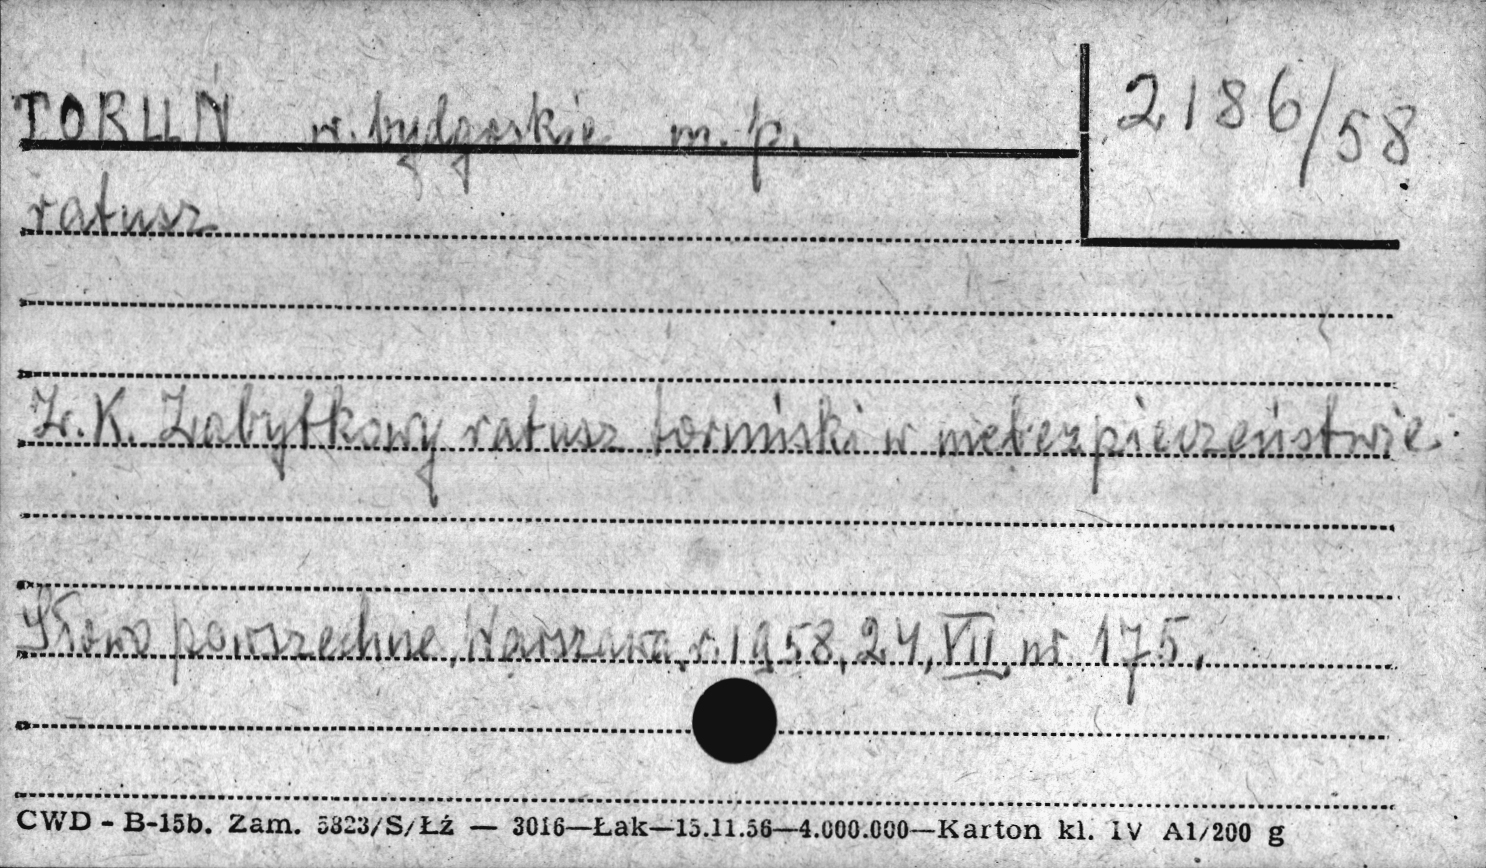 TORUŃ w. bydgoskie m. p.
2186/58
ratusz
Z. K. Zabytkowy ratusz toruński w niebezpieczeństwie.
Słowo powszechne, Warszawa, r. 1958, 24, VII, nr 175.
CWD - B-15b. Zam. 5823/S/Łź — 3016—Łak—15.11.56—4.000.000—Karton kl. IV A1/200 g